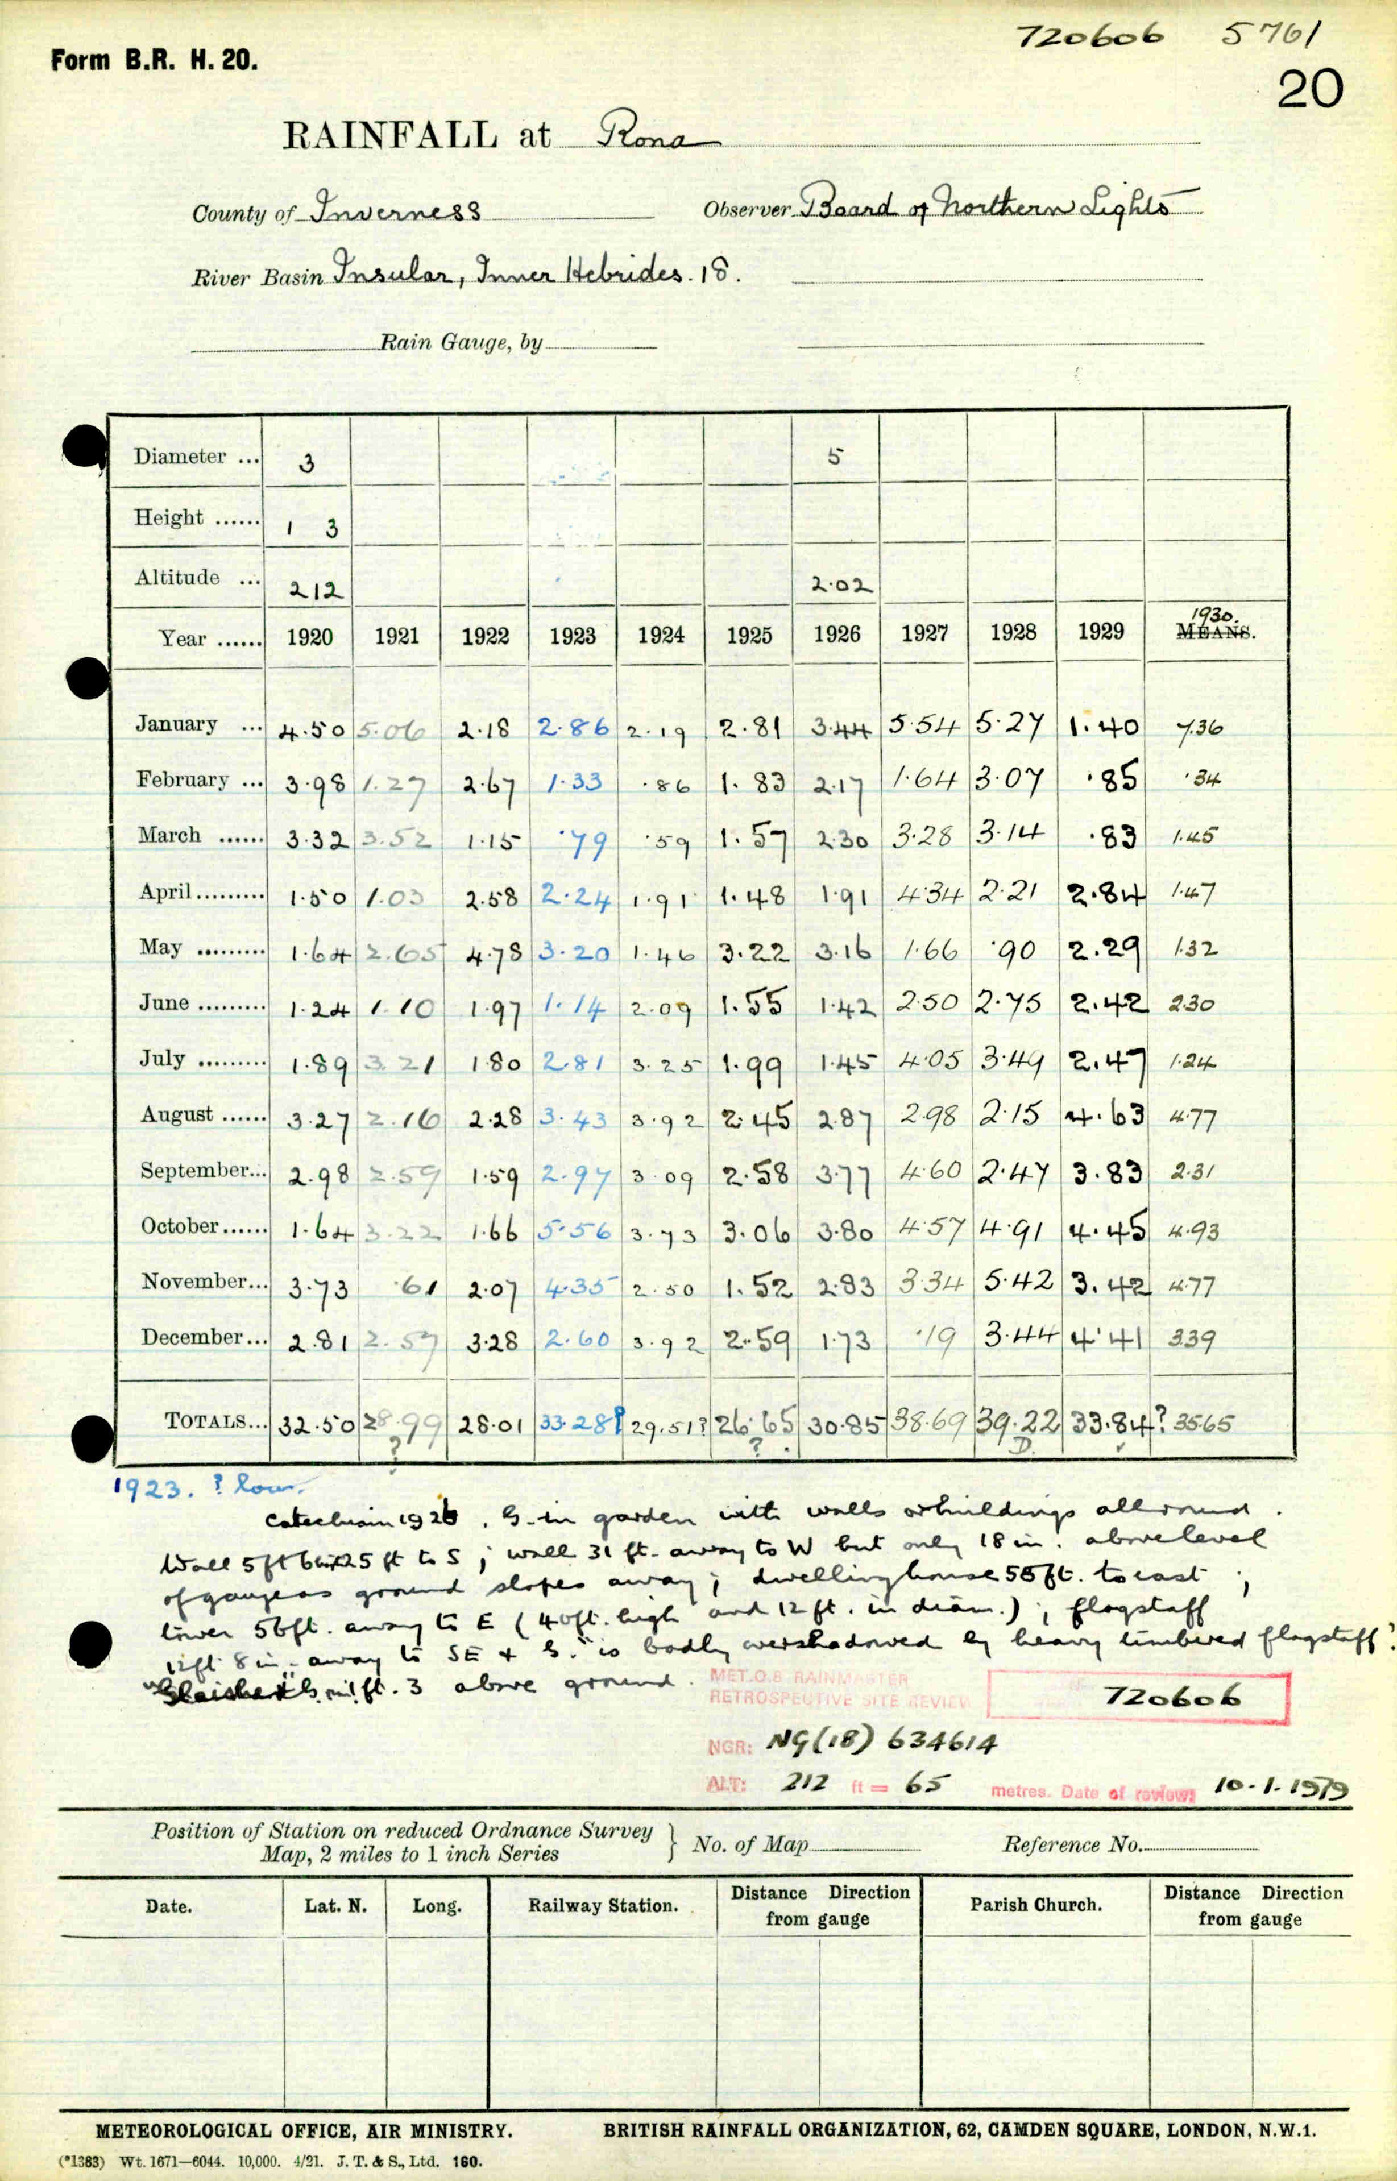 720606 5761
Form B.R. H. 20.
20
RAINFALL at Rona
County of Inverness Observer Board of Northern Lights
River Basin Insular, Inner Hebrides. 18.
Rain Gauge, by
Diameter ... 3 5
Height ...... 1 3
Altitude ... 212 2.02
1930.
Year ...... 1920 1921 1922 1923 1924 1925 1926 1927 1928 1929 MEANS.
January ... 4.50 5.06 2.18 2.86 2.19 2.81 3.44 5.54 5.27 1.40 7.36
February ... 3.98 1.27 2.67 1.33 .86 1.83 2.17 1.64 3.07 .85 .34
March ...... 3.32 3.52 1.15 .79 .59 1.57 2.30 3.28 3.14 .83 1.45
April......... 1.50 1.03 2.58 2.24 1.91 1.48 1.91 4.34 2.21 2.84 1.47
May ......... 1.64 2.65 4.78 3.20 1.46 3.22 3.16 1.66 .90 2.29 1.32
June ......... 1.24 1.10 1.97 1.14 2.09 1.55 1.42 2.50 2.75 2.42 2.30
July ......... 1.89 3.21 1.80 2.81 3.25 1.99 1.45 4.05 3.49 2.47 1.24
August ...... 3.27 2.16 2.28 3.43 3.92 2.45 2.87 2.98 2.15 4.63 4.77
September... 2.98 2.59 1.59 2.97 3.09 2.58 3.77 4.60 2.47 3.83 2.31
October...... 1.64 3.22 1.66 5.56 3.73 3.06 3.80 4.57 4.91 4.45 4.93
November... 3.73 .61 2.07 4.35 2.50 1.52 2.83 3.34 5.42 3.42 4.77
December... 2.81 2.57 3.28 2.60 3.92 2.59 1.73 .19 3.44 4.41 3.39
TOTALS... 32.50 28.99 28.01 33.28? 29.51? 26.65 30.85 38.69 39.22 33.84? 35.65
? ? D.
1923. ? low.
1926. G. in garden with walls or buildings all round.
Wall 5ft 6in 25 ft to S; wall 31 ft. away to W but only 18 in. above level
of gauge as ground slopes away; dwelling house 55ft. to east;
tower 56ft. away to E (40ft. high and 12 ft. in diam.); flagstaff
12ft 8in. away to SE & G. "is badly overshadowed by heavy timbered flagstaff"
G. 1ft. 3 above ground.
MET.O.8 RAINMASTER
RETROSPECTIVE SITE REVIEW 720606
NGR: NG(18) 634614
ALT: 212 ft = 65 metres. Date of review: 10.1.1979
Position of Station on reduced Ordnance Survey
Map, 2 miles to 1 inch Series } No. of Map Reference No.
Date. Lat. N. Long. Railway Station. Distance Direction from gauge Parish Church. Distance Direction from gauge
METEOROLOGICAL OFFICE, AIR MINISTRY. BRITISH RAINFALL ORGANIZATION, 62, CAMDEN SQUARE, LONDON, N.W.1.
(*1383) Wt. 1671—6044. 10,000. 4/21. J. T. & S., Ltd. 160.